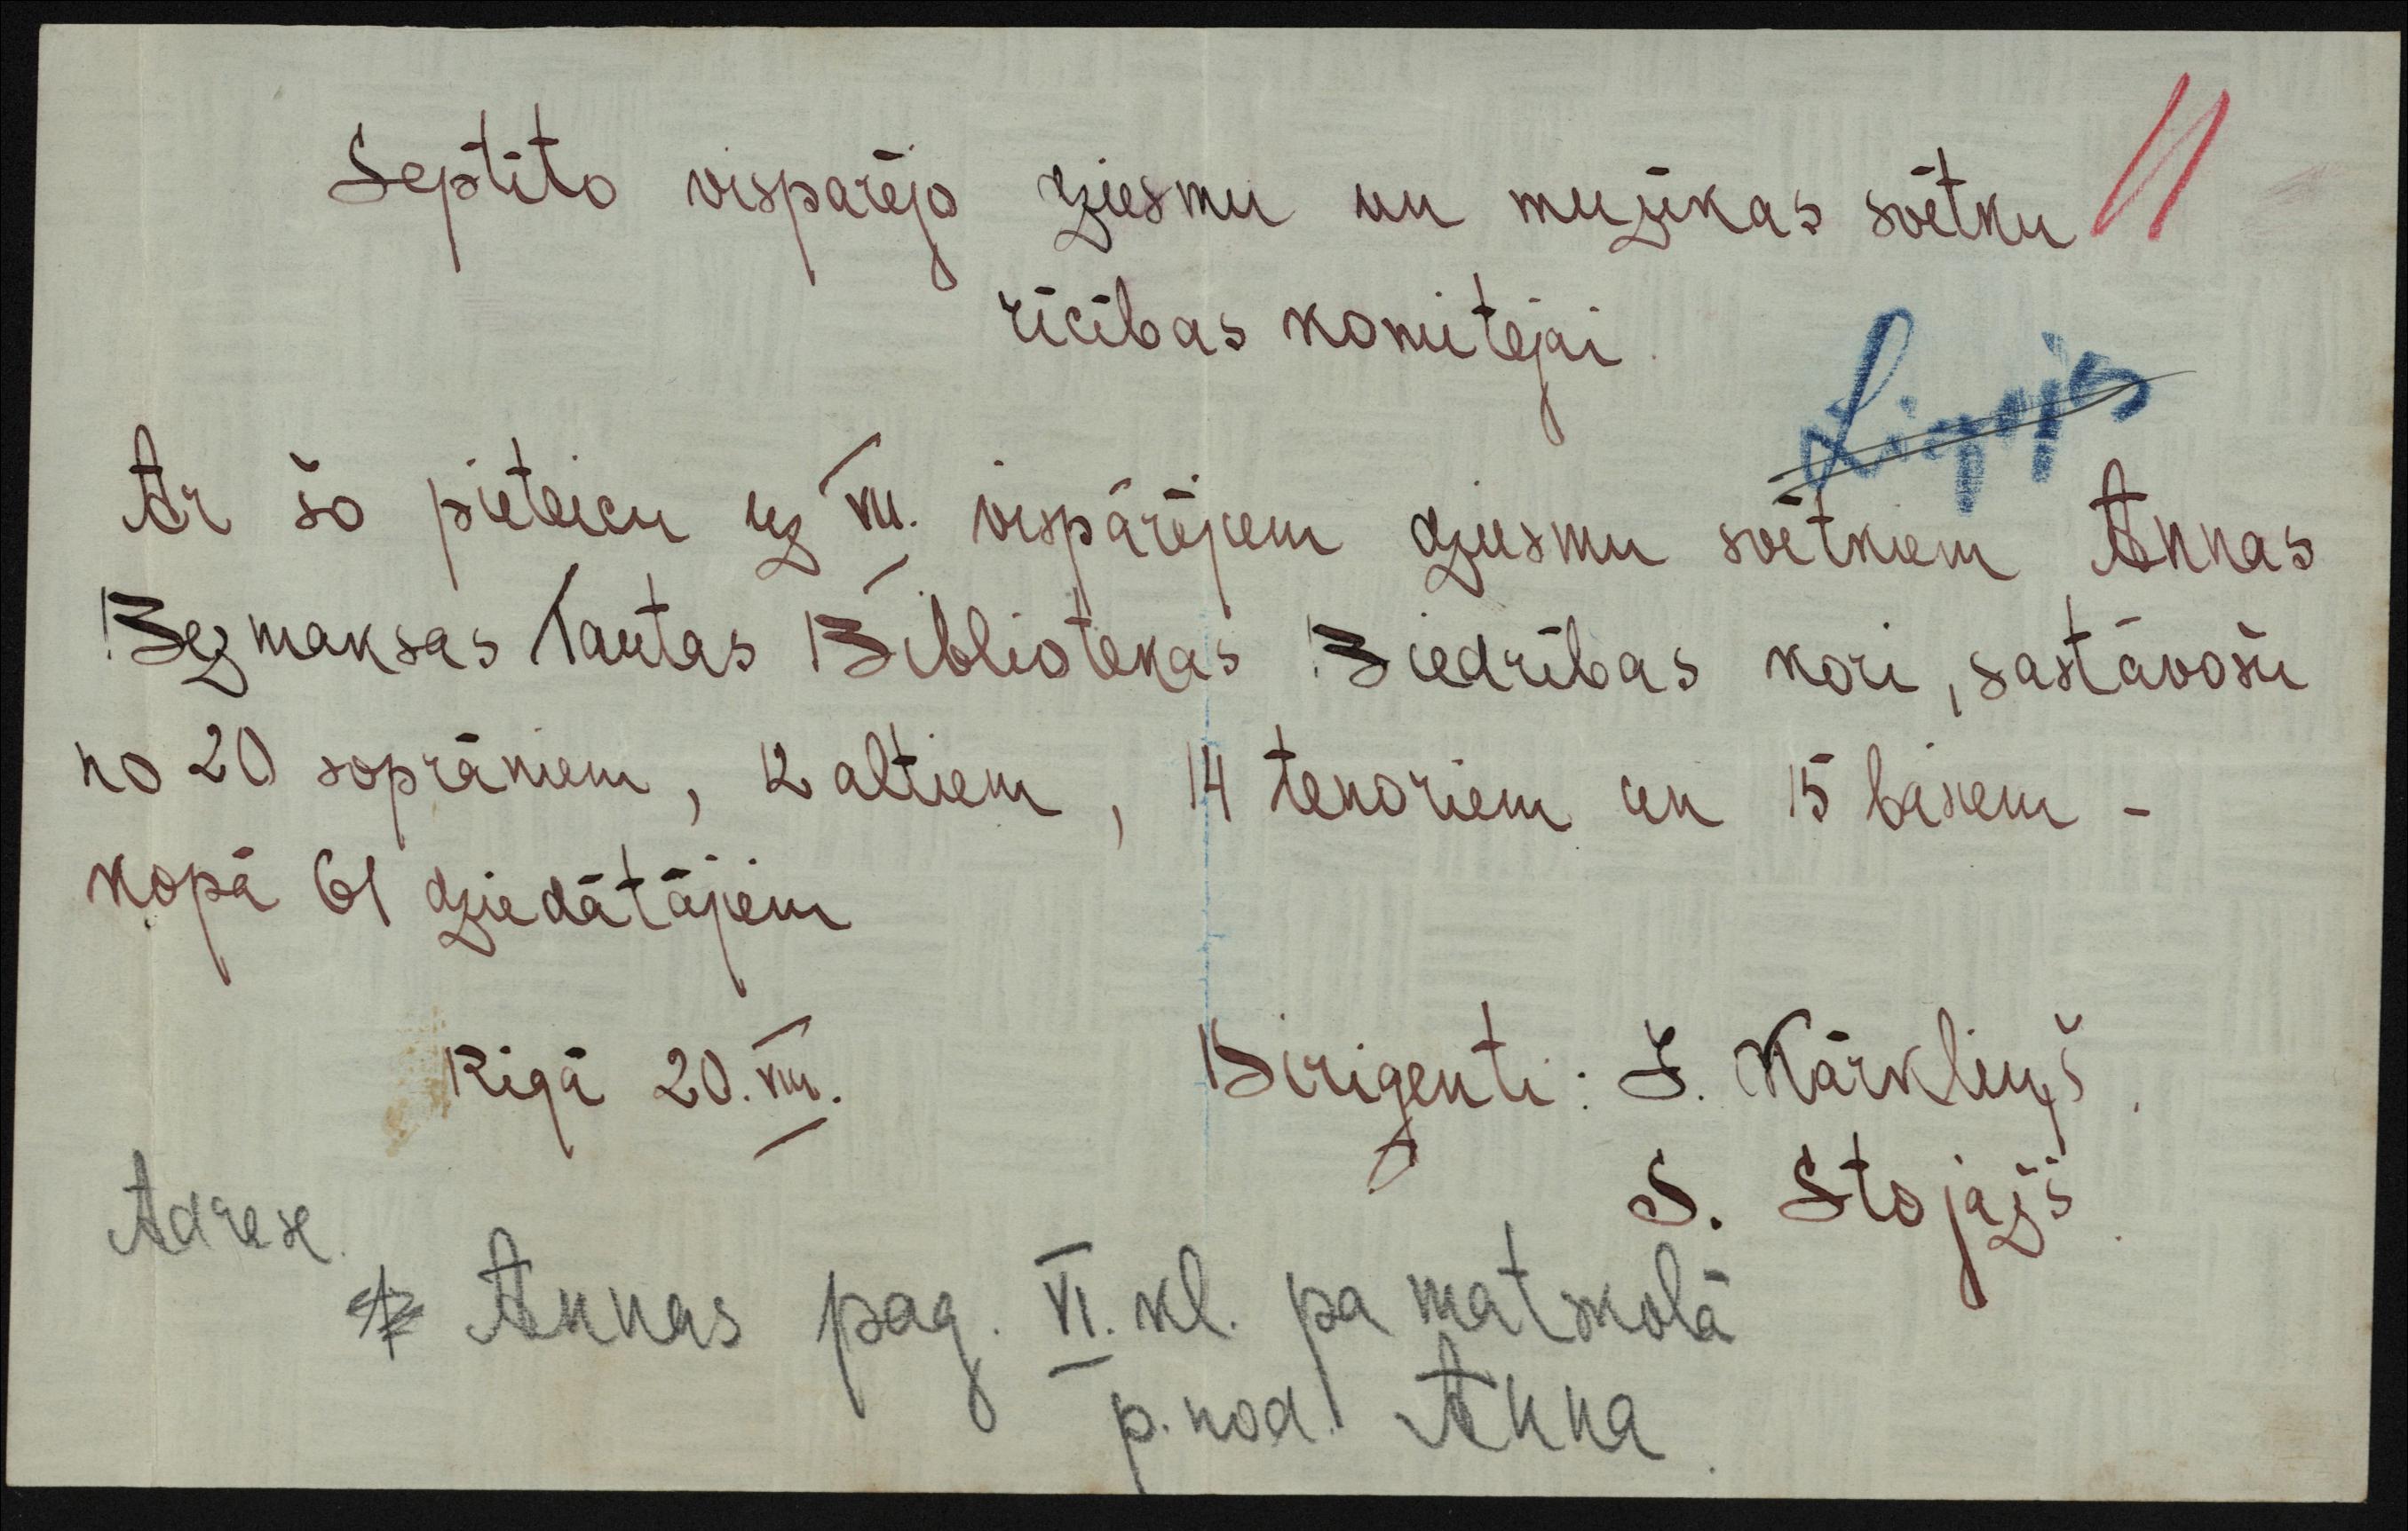 Septīto vispārējo dziesmu un muzikas svētku
rīcības komitejai.
Līgojis
Ar šo pieteicu uz VII. vispārējiem dziesmu svētkiem Annas
Bezmaksas Tautas Bibliotekas Biedrības kori, sastāvošu
no 20 soprāniem, 12 altiem, 14 tenoriem un 15 basiem -
kopā 61 dziedātājiem
Rīgā 20. VIII.
Dirigenti: J. Kārkliņš.
S. Stojaņš.
Adrese.
Annas pag. VI. kl. pamatskolā
p. nod. Anna.